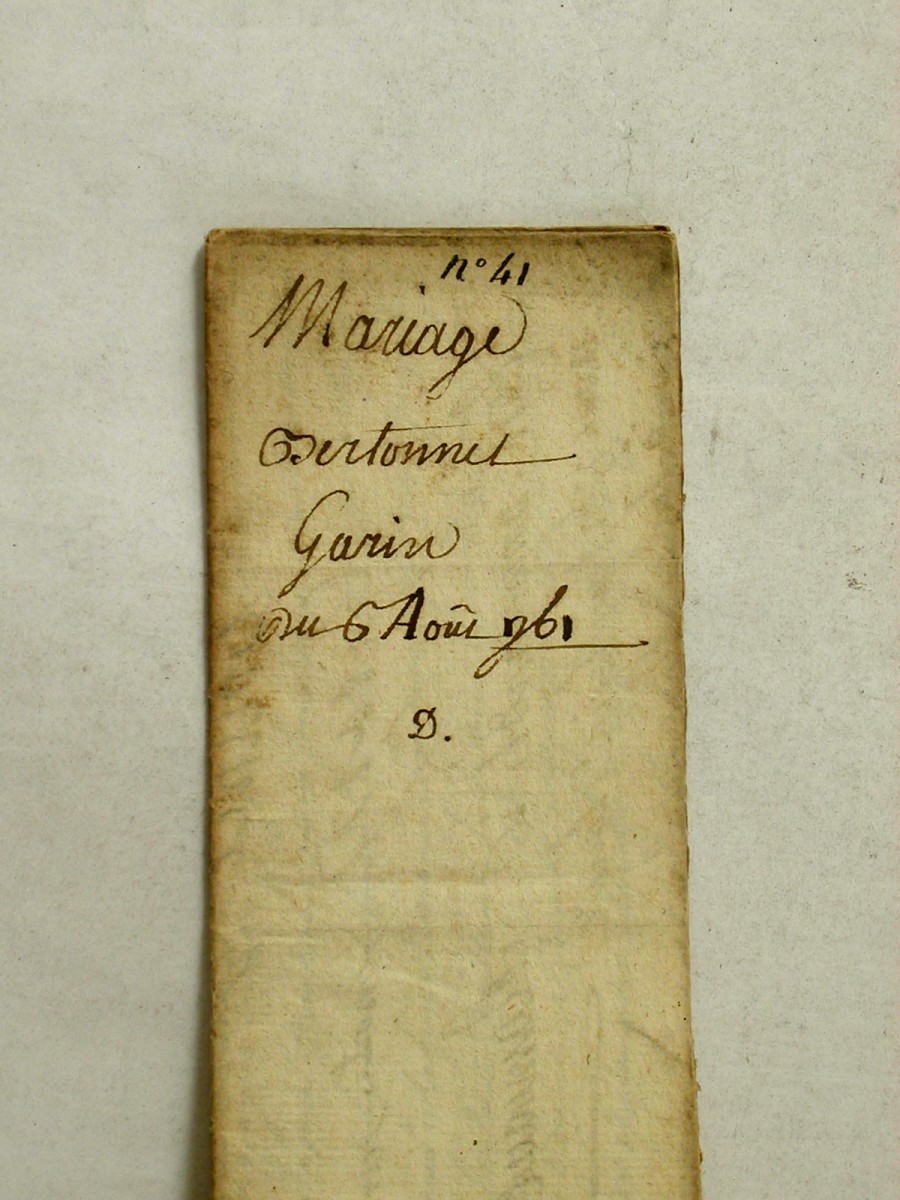 n° 41
Mariage
Bertonnet
Garin
Du 6 Août 761
D.